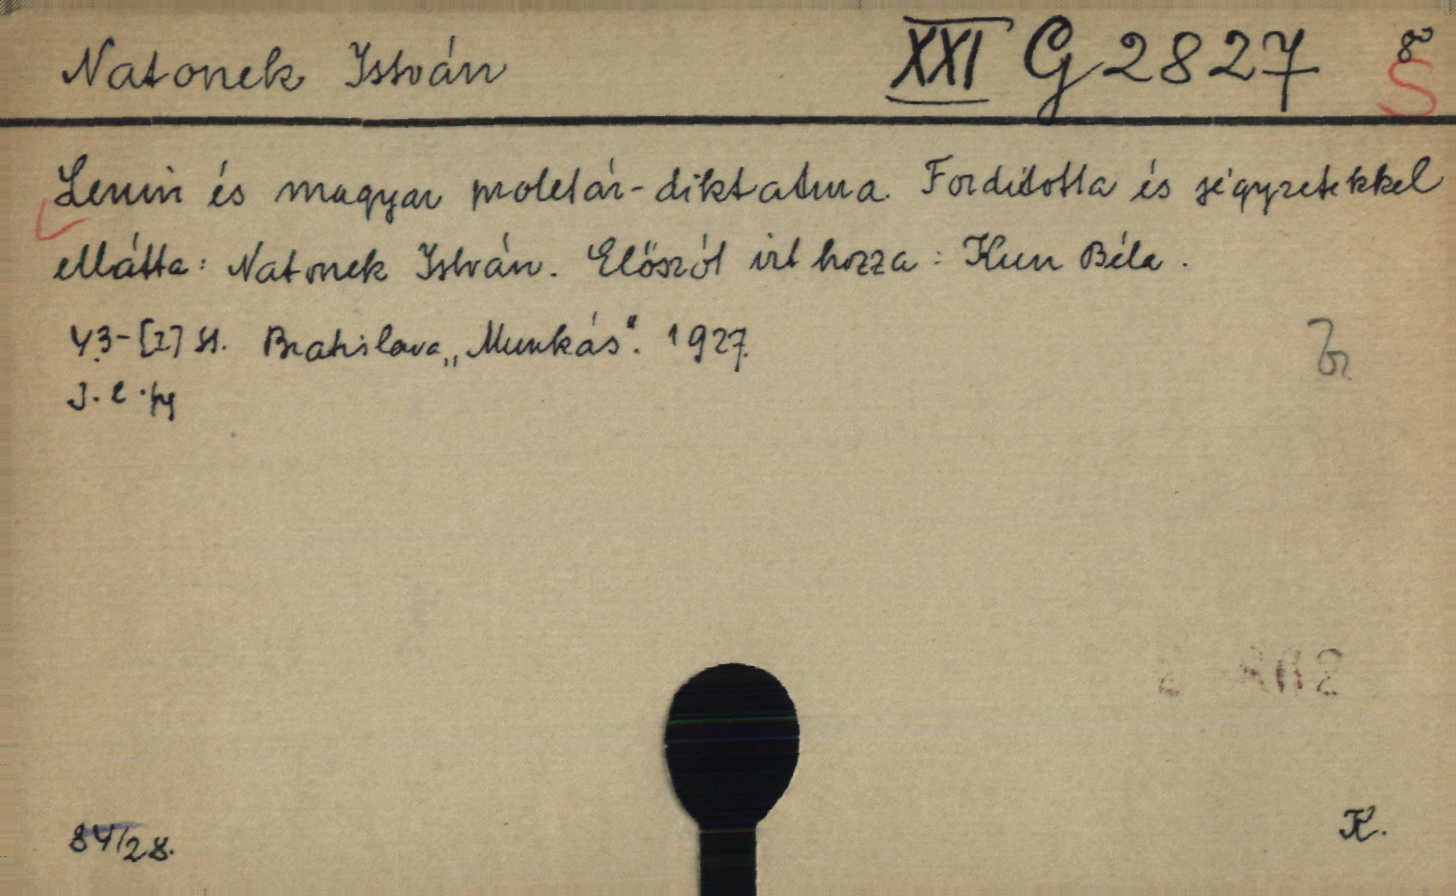 Natonek István XXI G 2827 8°
S
Lenin és magyar proletár-diktatura. Fordította és jegyzetekkel
ellátta: Natonek István. Előszót irt hozza: Kun Béla.
43-[1] l. Bratislava „Munkás". 1927.
84/28. K.